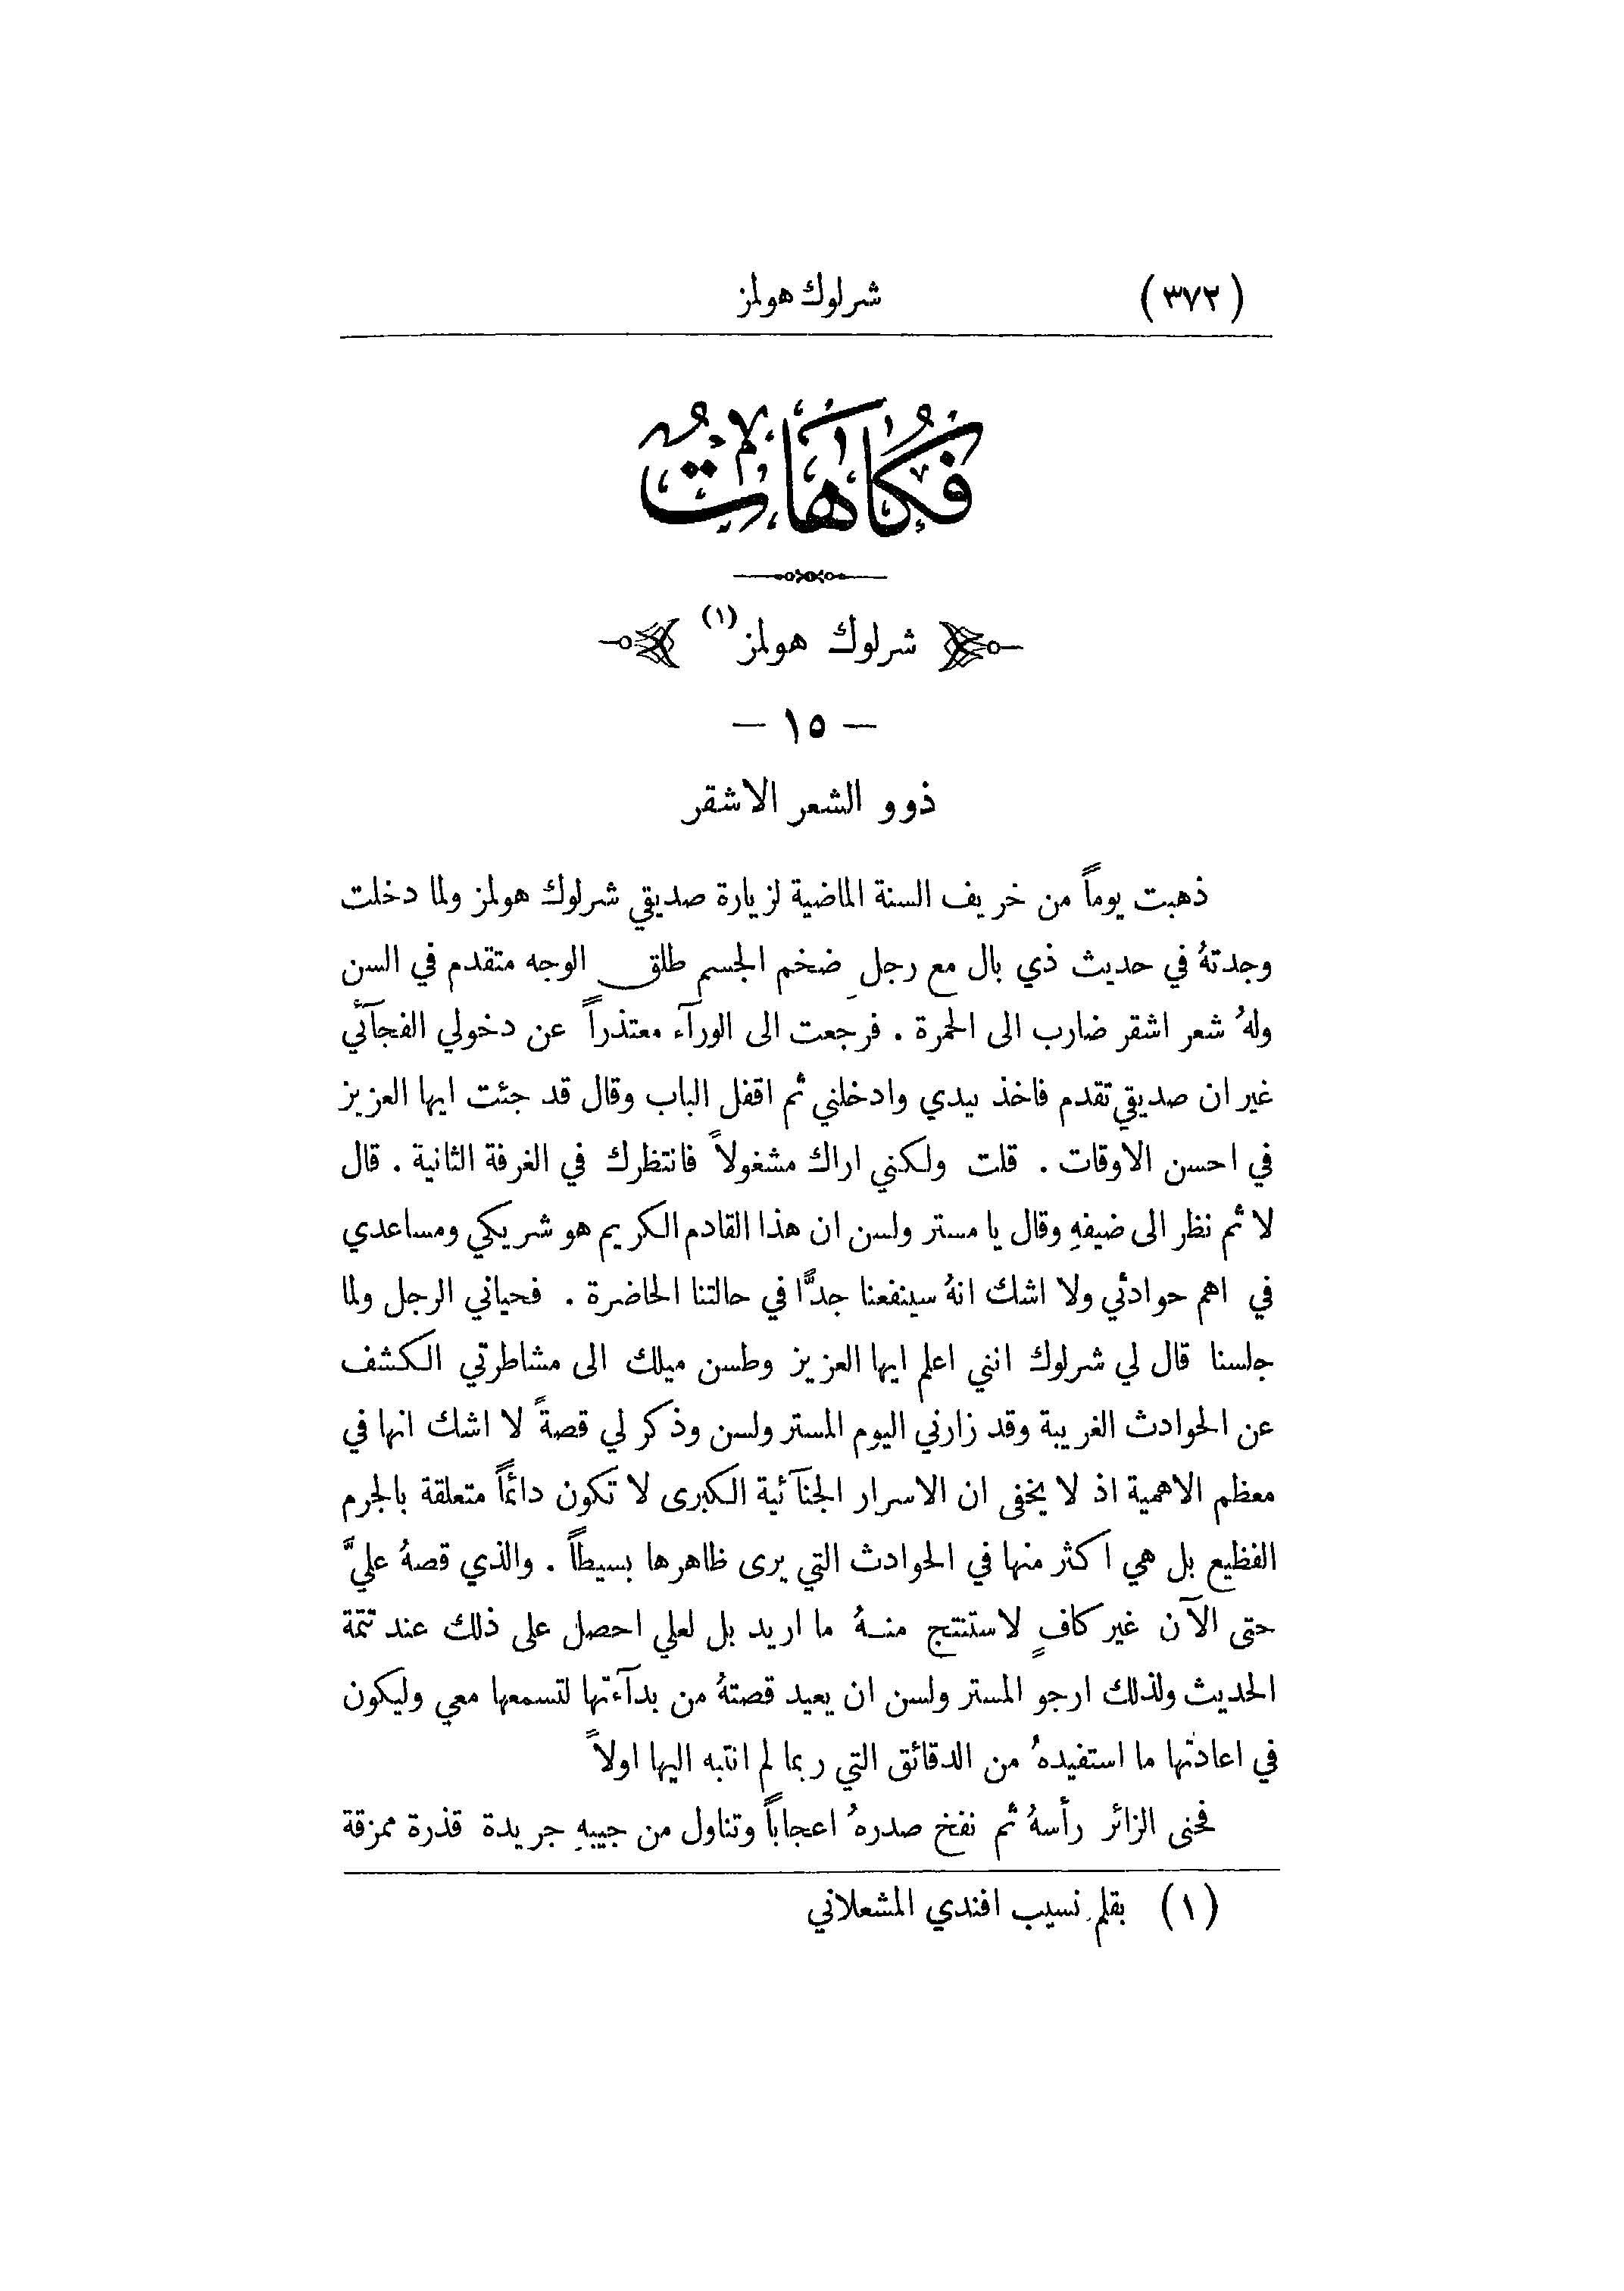 (٣٧٢) شرلوك هولمز
فُكَاهَاتٌ
شرلوك هولمز (١)
— ١٥ —
ذوو الشعر الاشقر
ذهبت يوماً من خريف السنة الماضية لزيارة صديقي شرلوك هولمز ولما دخلت
وجدتهُ في حديث ذي بال مع رجلٍ ضخم الجسم طلق الوجه متقدم في السن
ولهُ شعر اشقر ضارب الى الحمرة . فرجعت الى الورآء معتذراً عن دخولي الفجآئي
غير ان صديقي تقدم فاخذ بيدي وادخلني ثم اقفل الباب وقال قد جئت ايها العزيز
في احسن الاوقات . قلت ولكني اراك مشغولاً فانتظرك في الغرفة الثانية . قال
لا ثم نظر الى ضيفهِ وقال يا مستر ولسن ان هذا القادم الكريم هو شريكي ومساعدي
في اهم حوادثي ولا اشك انهُ سينفعنا جدًّا في حالتنا الحاضرة . فحياني الرجل ولما
جلسنا قال لي شرلوك انني اعلم ايها العزيز وطسن ميلك الى مشاطرتي الكشف
عن الحوادث الغريبة وقد زارني اليوم المستر ولسن وذكر لي قصةً لا اشك انها في
معظم الاهمية اذ لا يخفى ان الاسرار الجنآئية الكبرى لا تكون دائماً متعلقة بالجرم
الفظيع بل هي اكثر منها في الحوادث التي يرى ظاهرها بسيطاً . والذي قصهُ عليَّ
حتى الآن غير كافٍ لاستنتج منهُ ما اريد بل لعلي احصل على ذلك عند تتمة
الحديث ولذلك ارجو المستر ولسن ان يعيد قصتهُ من بدآءتها لتسمعها معي وليكون
في اعادتها ما استفيدهُ من الدقائق التي ربما لم انتبه اليها اولاً
فحنى الزائر رأسهُ ثم نفخ صدرهُ اعجاباً وتناول من جيبهِ جريدة قذرة ممزقة
(١) بقلم نسيب افندي المشعلاني